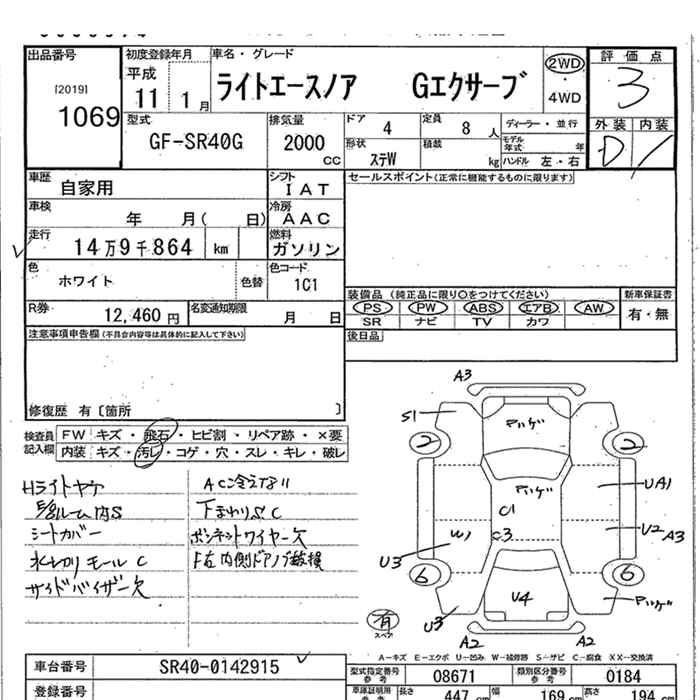 出品番号
[2019]
1069
初度登録年月
平成
11 1月
車名・グレード
ライトエースノア Gエクサーブ
2WD
・
4WD
評価点
3
外装 内装
D /
型式
GF-SR40G
排気量
2000
cc
ドア
4
定員
8 人
形状
ステW
積載
kg
ディーラー・並行
モデル年式 年
ハンドル 左・右
車歴
自家用
シフト
IAT
車検
年 月( 日)
冷房
AAC
走行
14万9千864 km
燃料
ガソリン
色
ホワイト
色替
色コード
1C1
R券
12,460 円
名変通知期限
月 日
セールスポイント(正常に機能するものに限ります)
装備品 (純正品に限り○をつけてください)
新車保証書
PS PW ABS エアB AW
SR ナビ TV カワ
有・無
後日品
注意事項申告欄(不具合内容等は具体的に記入して下さい)
修復歴 有〔箇所 〕
検査員記入欄
FW キズ・飛石・ヒビ割・リペア跡・×要
内装 キズ・汚レ・コゲ・穴・スレ・キレ・破レ
Hライトヤケ
ルーム内S
シートカバー
水切りモール C
サイドバイザー欠
AC冷えない
下まわりS C
ボンネットワイヤー欠
F左内側ドアノブ破損
A3
S1
ハゲ
2 2
ハゲ
C1
C3
W1
U3
UA1
U2
A3
6 6
U4
U3
ハゲ
A2 A2
有
スペア
A-キズ E-エクボ U-凹み W-補修跡 S-サビ C-腐食 XX-交換済
車台番号
SR40-0142915
登録番号
型式指定番号
参考
08671
類別区分番号
参考
0184
車庫証明用
参考
長さ
447 cm
幅
169 cm
高さ
194 cm